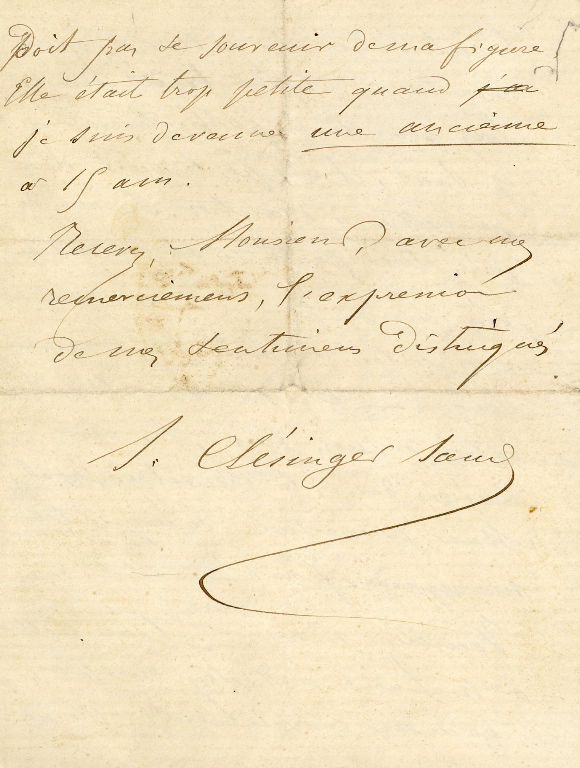 Doit pas se souvenir de ma figure
Elle était trop petite quand j'ai
je suis devenue une ancienne
a 15 ans.
Recevez, Monsieur, avec mes
remerciemens, l'expression
de mes sentimens distingués
S. Clésinger Sand